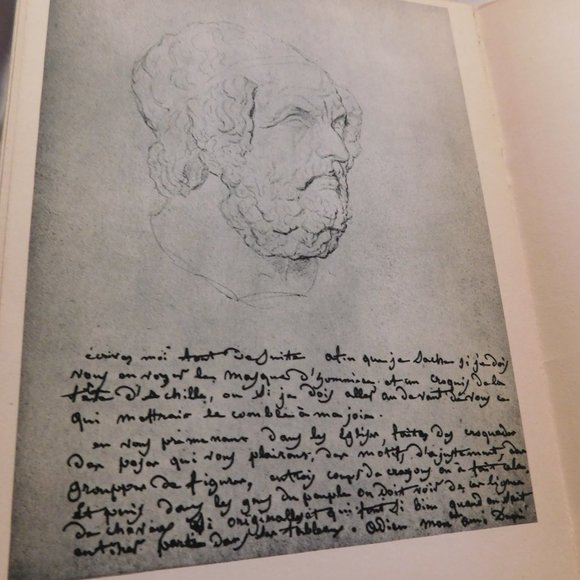 écrives moi tout de suite afin que je sache si je dois
vous envoyer le masque d'hommiere et un croquis de la
tête d'Achille, ou si je dois aller au devant de vous ce
qui mettrais le comble à ma joie.
en vous promenant dans les Eglise, faites des croquades
des pajes qui vous plairont, des motifs d'ajustement, des
grouppes de figures, en trois coups de crayons on a fait cela,
et puis dans les gens du peuple on doit voir de ces lignes
de charme si originalles et qui font si bien quand on sait
en tirer partie dans les tableaux. Adieu mon ami